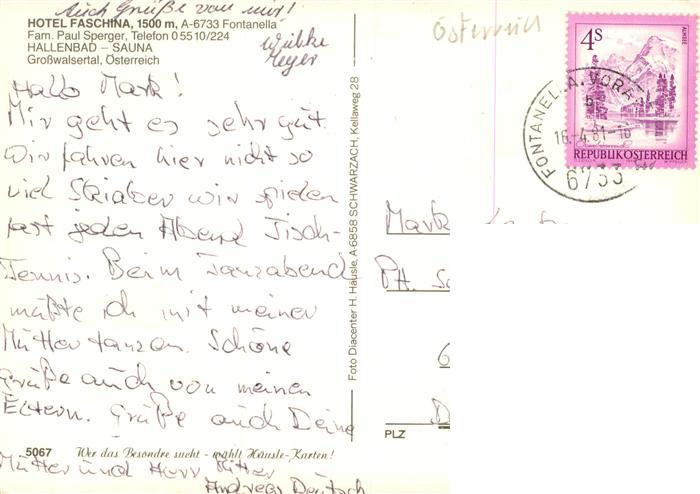 Auch Grüße von mir!
Wiebke
Meyer
HOTEL FASCHINA, 1500 m, A-6733 Fontanella
Fam. Paul Sperger, Telefon 0 55 10/224
HALLENBAD – SAUNA
Großwalsertal, Österreich
Hallo Mark!
Mir geht es sehr gut.
Wir fahren hier nicht so
viel Ski aber wir spielen
fast jeden Abend Tisch-
Tennis. Beim Tanzabend
müßte ich mit meiner
Mütter tanzen. Schöne
Grüße auch von meinen
Eltern. Grüße auch Deine
5067 Wer das Besondre sucht - wählt Häusle-Karten!
Mütter und Herr Ritter
Andreas
Foto Diacenter H. Häusle, A-6858 SCHWARZACH, Kellaweg 28
Österreich
4S
ALMSEE
REPUBLIK ÖSTERREICH
FONTANEL. A. VORA
b
16.-4.81-18
6733
Mark
Pf.
6
D
PLZ